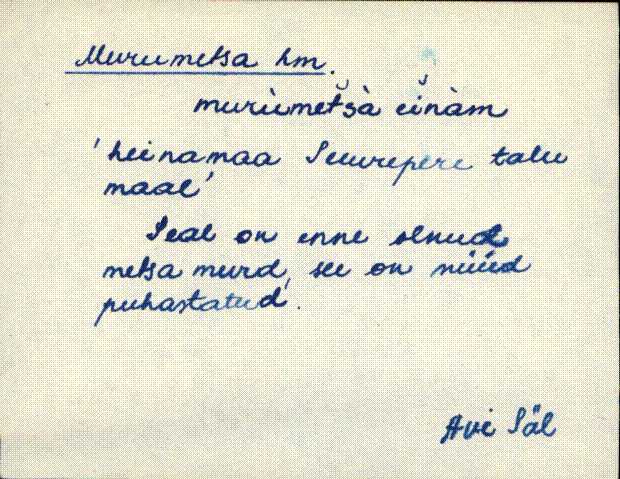 Murumetsa hm.
murùmet̆sà ĕinàm
'heinamaa Suurepere talu
maal'
Seal on enne olnud
metsa murd, see on nüüd
puhastatud.
Avi Säl